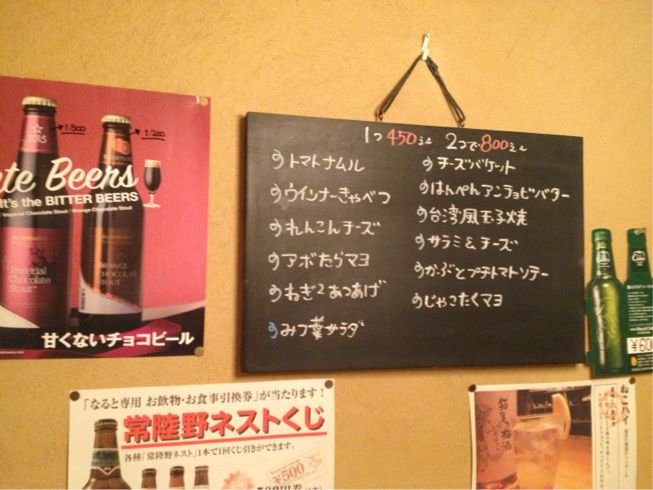 1つ 450えん 2つで 800えん
トマトナムル
ウインナーきゃべつ
れんこんチーズ
アボたらマヨ
ねぎ2あつあげ
みつ葉サラダ
チーズバケット
はんぺんアンチョビバター
台湾風玉子焼
サラミ&チーズ
かぶとプチトマトソテー
じゃこたくマヨ
2015
1.500
1.200
ate Beers
It's the BITTER BEERS
Imperial Chocolate Stout / Orange Chocolate Stout
Imperial
Chocolate
Stout
ORANGE
CHOCOLATE
STOUT
甘くないチョコビール
「なると専用 お飲物・お食事引換券」が当たります!
常陸野ネストくじ
各種「常陸野ネスト」1本で1回くじ引きができます。
¥500
¥600
ねこハイ